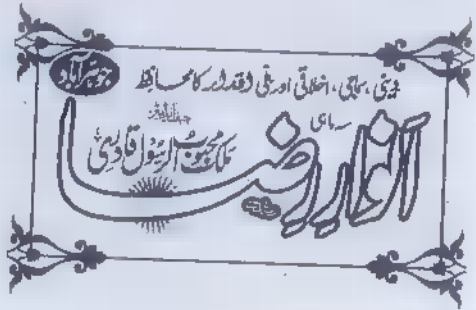 جوہرآباد
دینی، سماجی، اخلاقی اور ملی اقدار کا محافظ
سہ ماہی
انوار رضا
چیف ایڈیٹر
ملک محبوب الرسول قادری